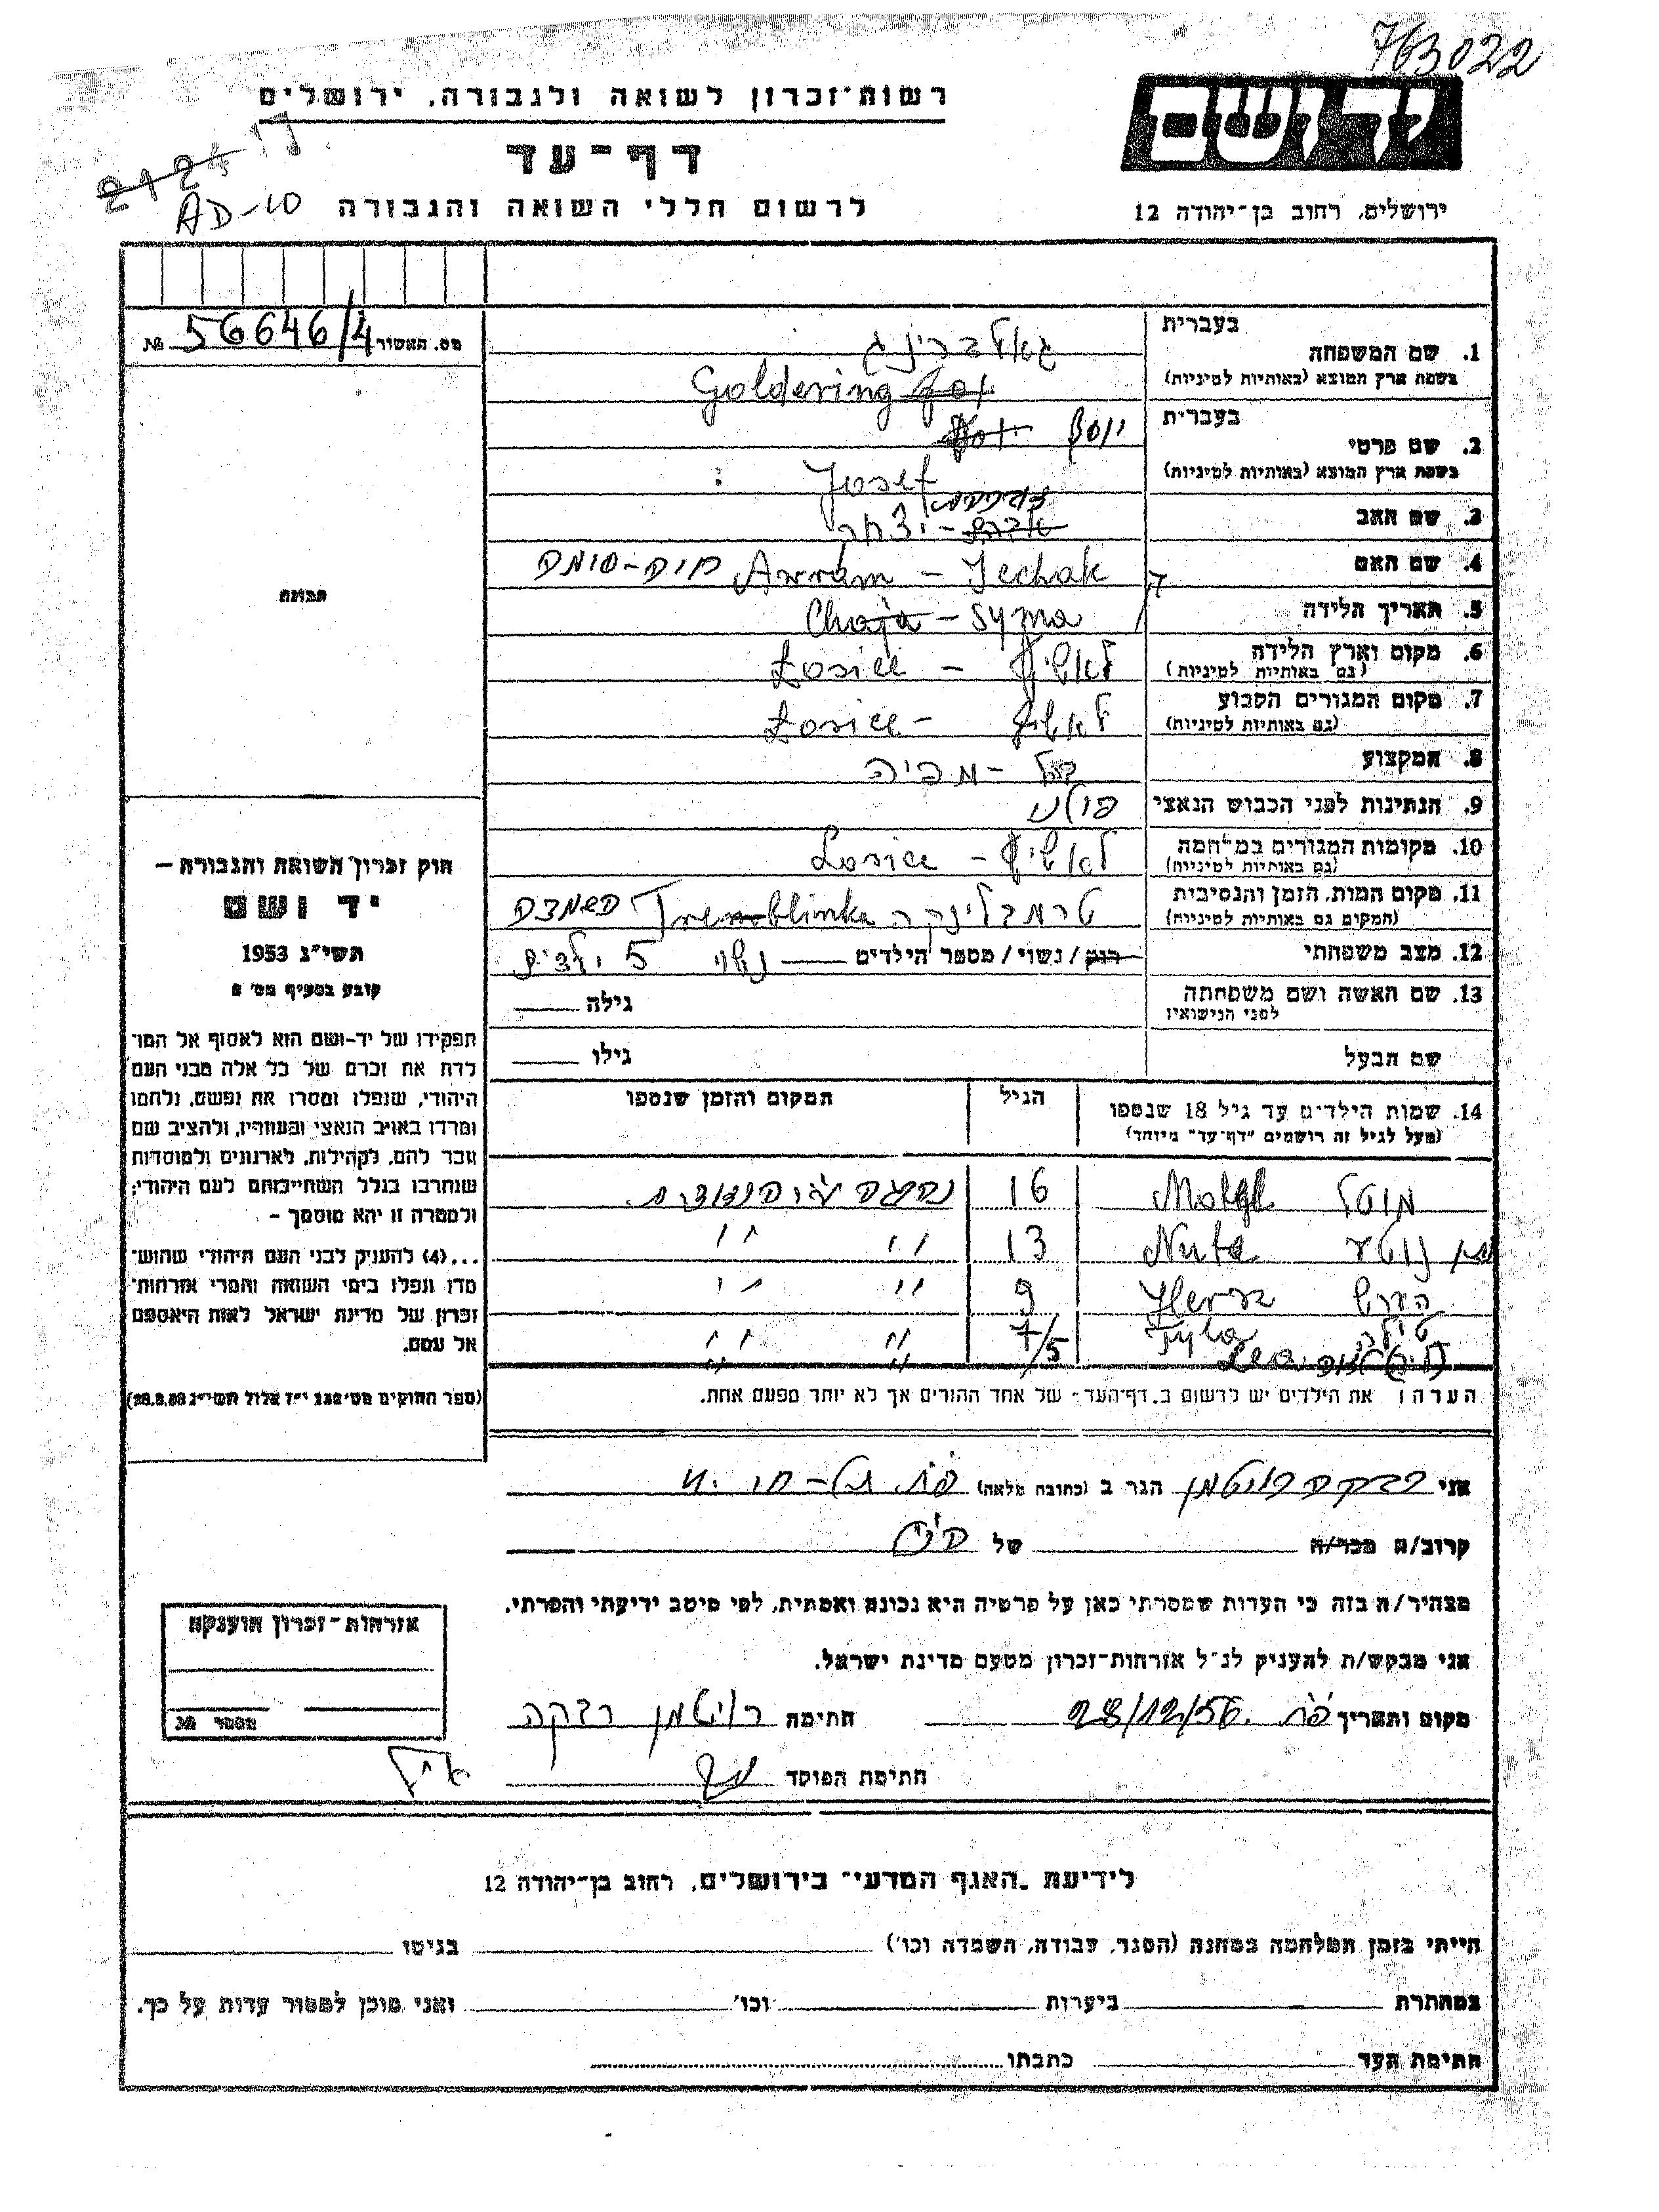 763022
רשות־זכרון לשואה ולגבורה, ירושלים
יד ושם
דף־עד
2124
AD-10
לרשום חללי השואה והגבורה
ירושלים, רחוב בן־יהודה 12
מס. האשור 56646/4 №
בעברית
1. שם המשפחה
בשפת ארץ המוצא (באותיות לטיניות)
Goldering
בעברית יוסף
2. שם פרטי
בשפת ארץ המוצא (באותיות לטיניות)
Josef
3. שם האב
4. שם האם Avram - Jechak
5. תאריך הלידה Chaja - Syma
6. מקום וארץ הלידה Łosice -
(גם באותיות לטיניות)
7. מקום המגורים הקבוע Łosice -
(גם באותיות לטיניות)
8. המקצוע
9. הנתינות לפני הכבוש הנאצי
10. מקומות המגורים במלחמה Losice -
(גם באותיות לטיניות)
11. מקום המות, הזמן והנסיבות טרמבלינקה Tremblinka
(המקום גם באותיות לטיניות)
12. מצב משפחתי רווק / נשוי / מספר הילדים נשוי 5 ילדים
13. שם האשה ושם משפחתה גילה
לפני הנישואין
שם הבעל גילו
14. שמות הילדים עד גיל 18 שנספו הגיל המקום והזמן שנספו
(מעל לגיל זה רושמים "דף־עד" מיוחד)
מוטל 16
Nuta 13 " "
הערש Hersz 9 " "
טילה Tyla 7/5 " "
" "
הערה: את הילדים יש לרשום ב„דף־העד״ של אחד ההורים אך לא יותר מפעם אחת.
תמונה
חוק זכרון השואה והגבורה —
יד ושם
תשי״ג 1953
קובע בסעיף מס׳ 2
תפקידו של יד־ושם הוא לאסוף אל המו־
לדת את זכרם של כל אלה מבני העם
היהודי, שנפלו ומסרו את נפשם, נלחמו
ומרדו באויב הנאצי ובעוזריו, ולהציב שם
וזכר להם, לקהילות, לארגונים ולמוסדות
שנחרבו בגלל השתייכותם לעם היהודי;
ולמטרה זו יהא מוסמך —
...(4) להעניק לבני העם היהודי שהוש־
מדו ונפלו בימי השואה והמרי אזרחות־
זכרון של מדינת ישראל לאות היאספם
אל עמם.
(ספר החוקים מס׳ 132 י״ז אלול תשי״ג 28.8.53)
אני רבקה רויטמן הגר ב (כתובת מלאה)
קרוב/ה מכר/ה של
מצהיר/ה בזה כי העדות שמסרתי כאן על פרטיה היא נכונה ואמתית, לפי מיטב ידיעתי והכרתי.
אני מבקש/ת להעניק לנ״ל אזרחות־זכרון מטעם מדינת ישראל.
מקום ותאריך 28/12/56 חתימה רויטמן רבקה
חתימת הפוקד
אזרחות־זכרון הוענקה
מספר №
לידיעת „האגף המדעי״ בירושלים, רחוב בן־יהודה 12
הייתי בזמן המלחמה במחנה (הסגר, עבודה, השמדה וכו׳) בגיטו
במחתרת ביערות וכו׳ ואני מוכן למסור עדות על כך.
חתימת העד כתבתו